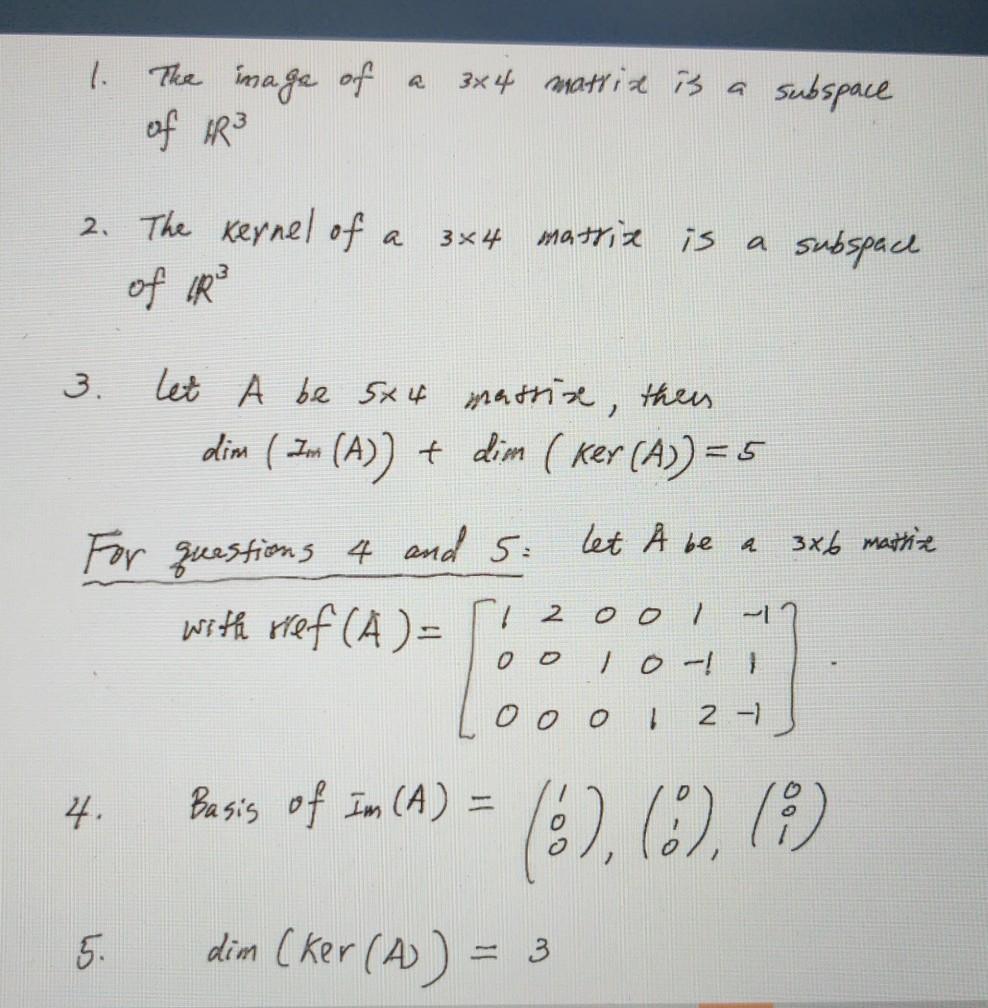 1. The image of a 3×4 matrix is a subspace
of ℝ³
2. The kernel of a 3×4 matrix is a subspace
of ℝ³
3. Let A be 5×4 matrix, then
dim (Im(A)) + dim (ker(A)) = 5
For questions 4 and 5: Let A be a 3×6 matrix
with rref(A) = [1 2 0 0 1 -1
0 0 1 0 -1 1
0 0 0 1 2 -1].
4. Basis of Im(A) = (1 0 0), (0 1 0), (0 0 1)
5. dim (Ker(A)) = 3